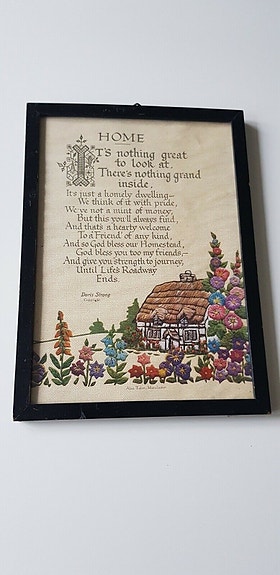 HOME
IT'S nothing great
to look at,
There's nothing grand
inside,
It's just a homely dwelling—
We think of it with pride,
We've not a mint of money,
But this you'll always find,
And that's a hearty welcome
To a Friend of any kind,
And so God bless our Homestead,
God bless you too my friends,—
And give you strength to journey,
Until Life's Roadway
Ends.
Doris Strong
Copyright